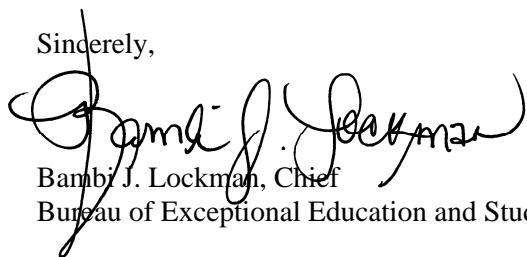 Sincerely,
Bambi J. Lockman
Bambi J. Lockman, Chief
Bureau of Exceptional Education and Stud